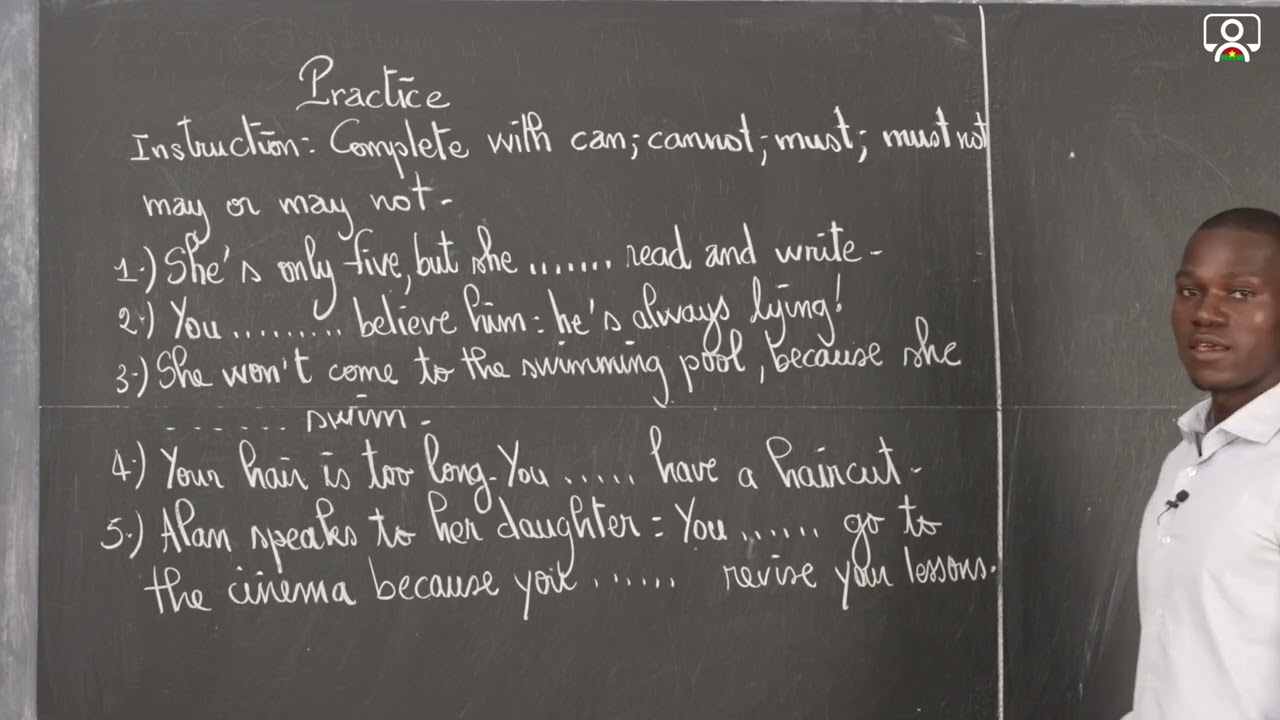 Practice
Instruction: Complete with can; cannot; must; must not
may or may not.
1.) She's only five, but she ....... read and write.
2.) You ......... believe him: he's always lying!
3.) She won't come to the swimming pool, because she
...... swim.
4.) Your hair is too long. You ..... have a haircut.
5.) Alan speaks to her daughter: You ...... go to
the cinema because you ...... revise your lessons.